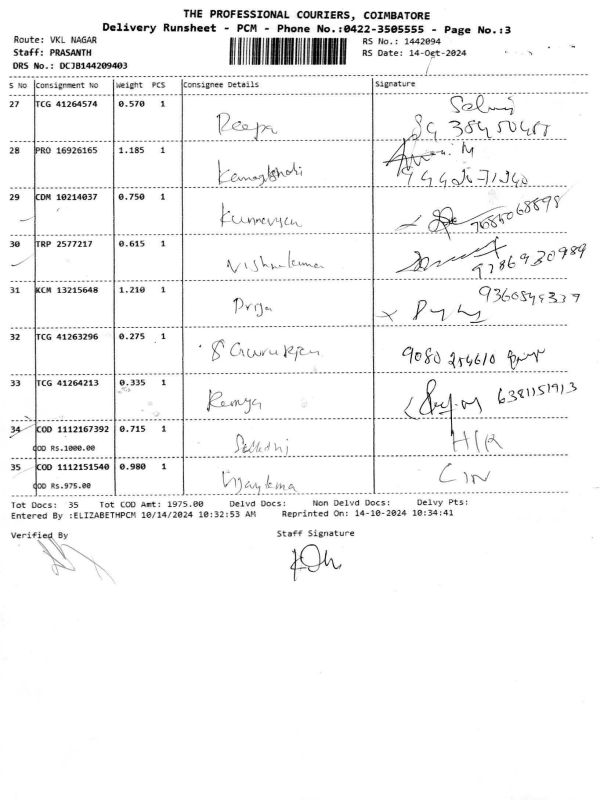 THE PROFESSIONAL COURIERS, COIMBATORE
Delivery Runsheet - PCM - Phone No.:0422-3505555 - Page No.:3
Route: VKL NAGAR
RS No.: 1442094
Staff: PRASANTH
RS Date: 14-Oct-2024
DRS No.: DCJB144209403
S No Consignment No Weight PCS Consignee Details Signature
27 TCG 41264574 0.570 1 Deepa
28 PRO 16926165 1.185 1
29 CDM 10214037 0.750 1
30 TRP 2577217 0.615 1 Vishnukumar 9786930989
31 KCM 13215648 1.210 1 Priya
32 TCG 41263296 0.275 1
33 TCG 41264213 0.335 1 Ramya 6381151913
34 COD 1112167392 0.715 1 H/R
COD Rs.1000.00
35 COD 1112151540 0.980 1
COD Rs.975.00
Tot Docs: 35 Tot COD Amt: 1975.00 Delvd Docs: Non Delvd Docs: Delvy Pts:
Entered By :ELIZABETHPCM 10/14/2024 10:32:53 AM Reprinted On: 14-10-2024 10:34:41
Verified By Staff Signature